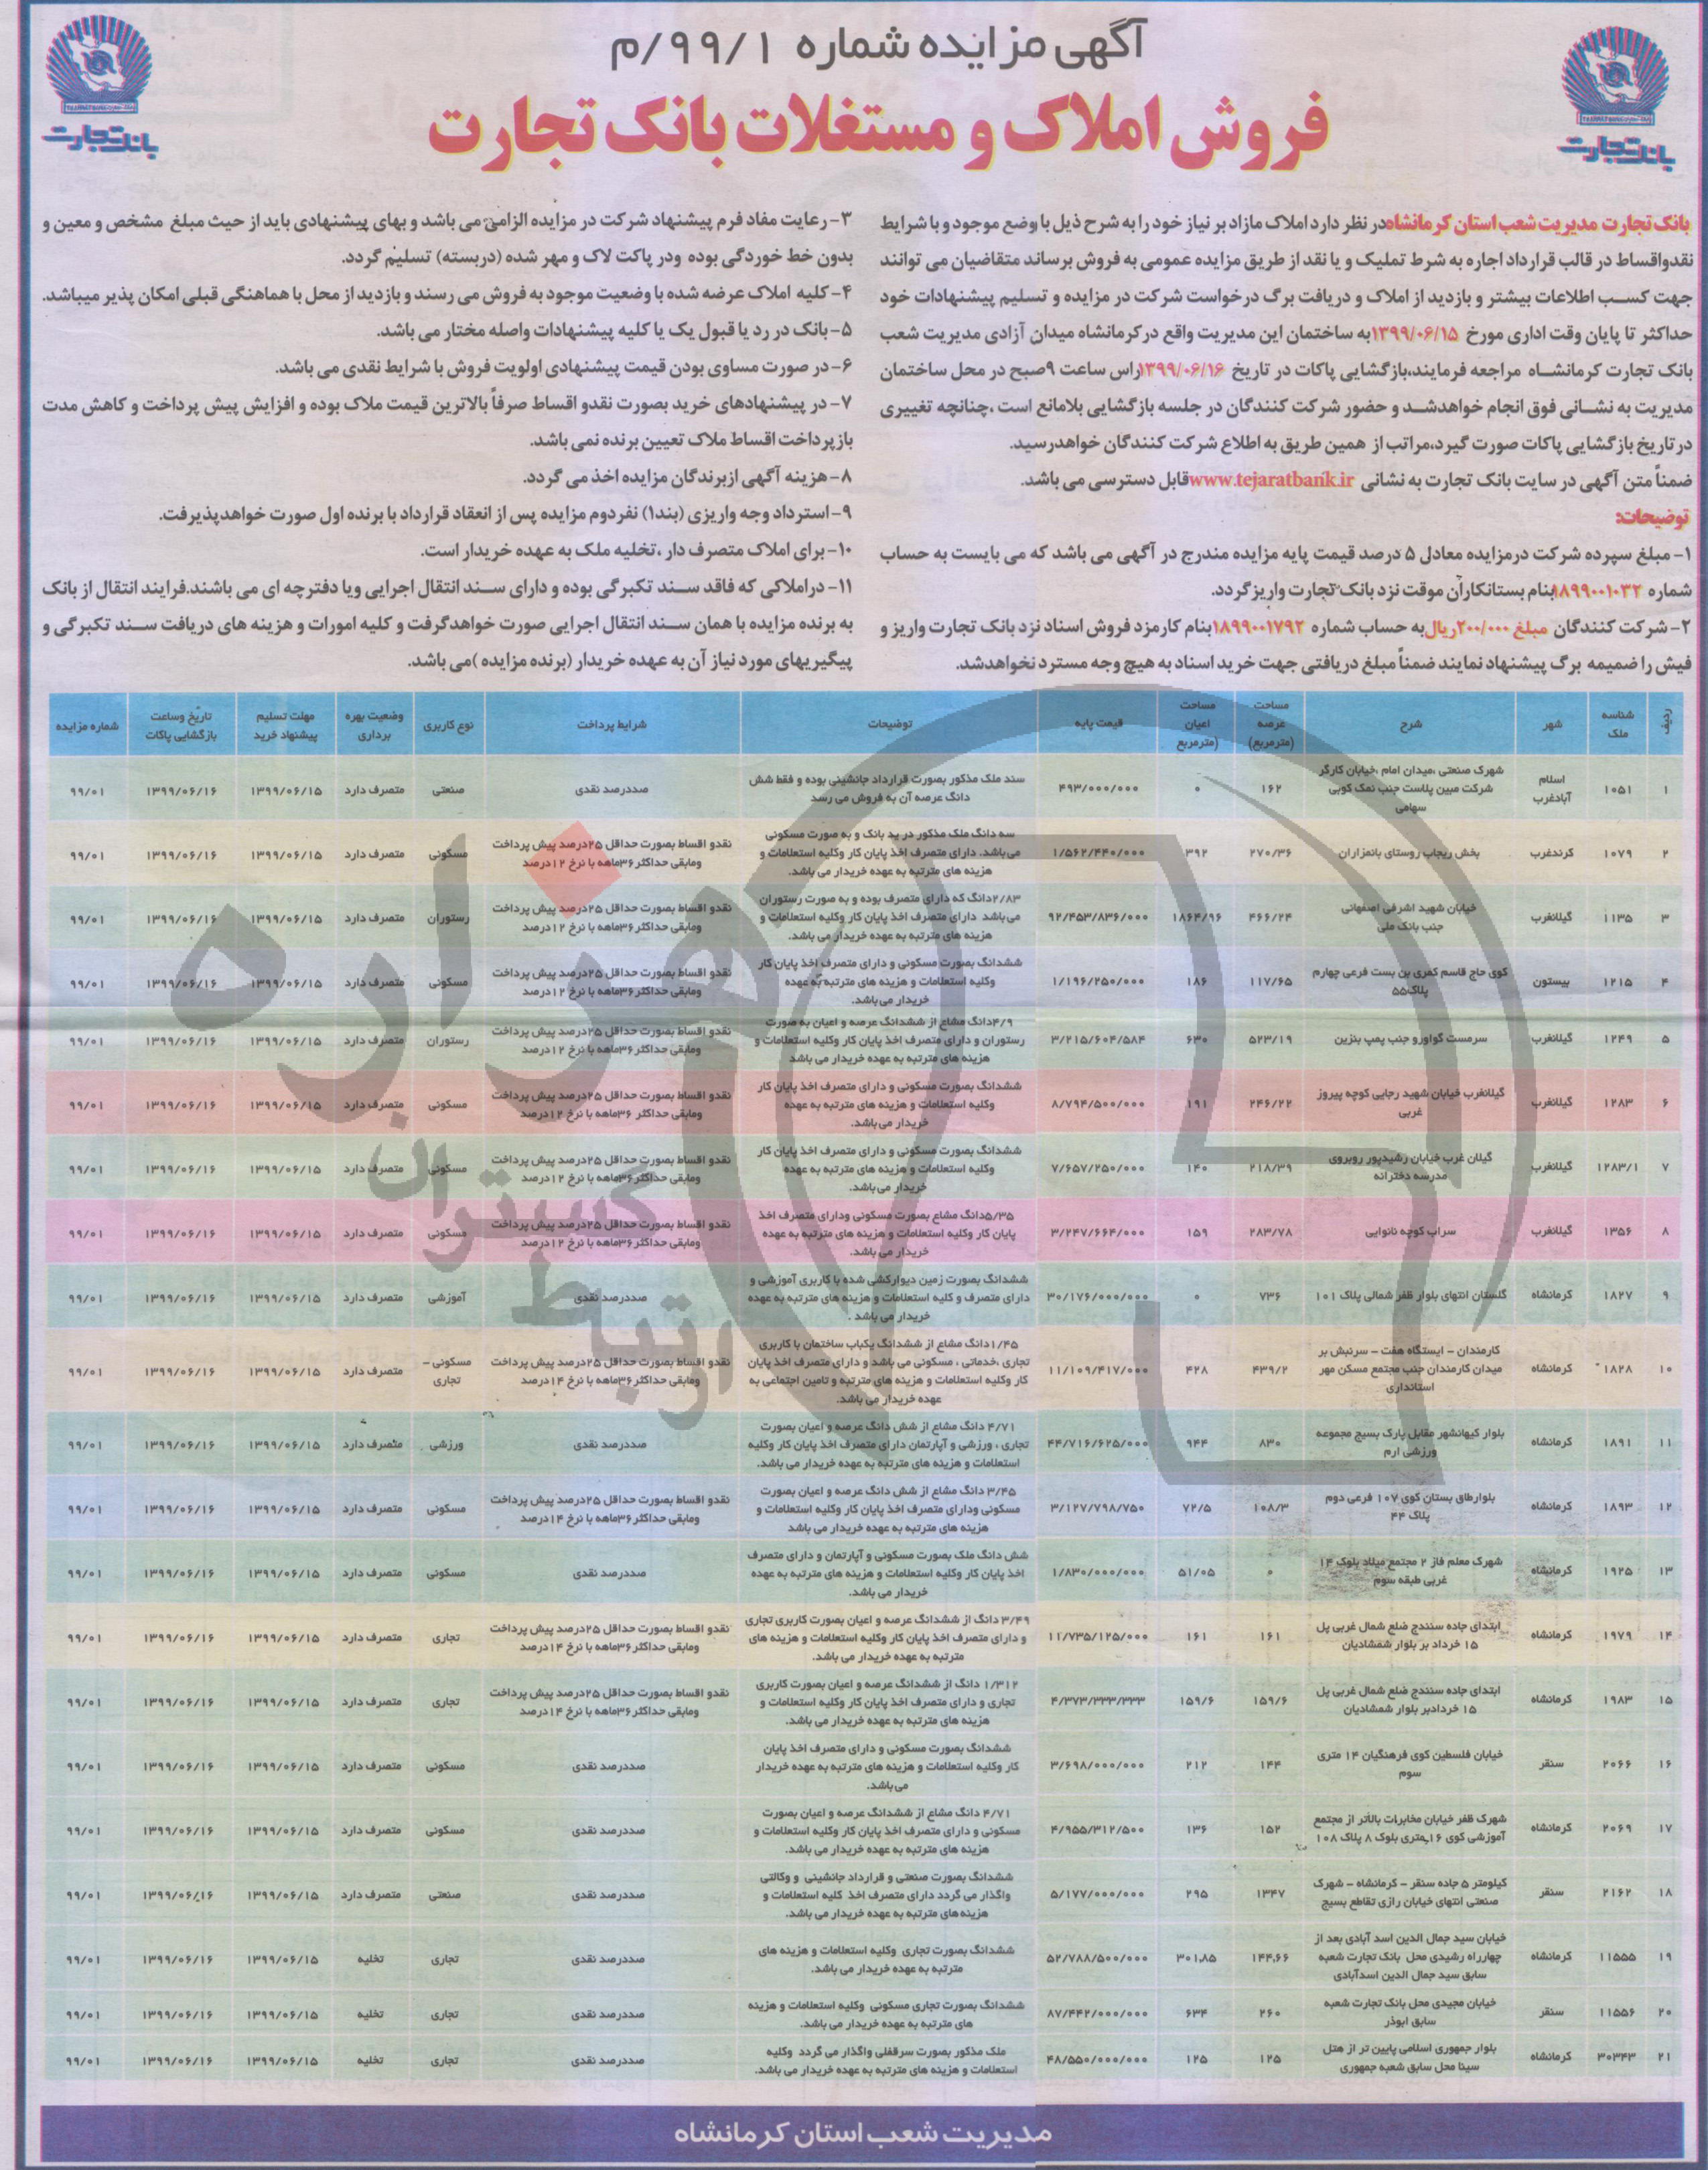 آگهی مزایده شماره ۹۹/۱/م
فروش املاک و مستغلات بانک تجارت
بانک تجارت
بانک تجارت
بانک تجارت مدیریت شعب استان کرمانشاه در نظر دارد املاک مازاد بر نیاز خود را به شرح ذیل با وضع موجود و با شرایط
نقدواقساط در قالب قرارداد اجاره به شرط تملیک و یا نقد از طریق مزایده عمومی به فروش برساند متقاضیان می توانند
جهت کسب اطلاعات بیشتر و بازدید از املاک و دریافت برگ درخواست شرکت در مزایده و تسلیم پیشنهادات خود
حداکثر تا پایان وقت اداری مورخ ۱۳۹۹/۰۶/۱۵ به ساختمان این مدیریت واقع در کرمانشاه میدان آزادی مدیریت شعب
بانک تجارت کرمانشاه مراجعه فرمایند،بازگشایی پاکات در تاریخ ۱۳۹۹/۰۶/۱۶ راس ساعت ۹صبح در محل ساختمان
مدیریت به نشانی فوق انجام خواهدشد و حضور شرکت کنندگان در جلسه بازگشایی بلامانع است ،چنانچه تغییری
درتاریخ بازگشایی پاکات صورت گیرد،مراتب از همین طریق به اطلاع شرکت کنندگان خواهدرسید.
ضمناً متن آگهی در سایت بانک تجارت به نشانی www.tejaratbank.ir قابل دسترسی می باشد.
توضیحات:
۱- مبلغ سپرده شرکت درمزایده معادل ۵ درصد قیمت پایه مزایده مندرج در آگهی می باشد که می بایست به حساب
شماره ۱۸۹۹۰۰۱۰۳۲ بنام بستانکاران موقت نزد بانک تجارت واریز گردد.
۲- شرکت کنندگان مبلغ ۲۰۰/۰۰۰ریال به حساب شماره ۱۸۹۹۰۰۱۷۹۲ بنام کارمزد فروش اسناد نزد بانک تجارت واریز و
فیش را ضمیمه برگ پیشنهاد نمایند ضمناً مبلغ دریافتی جهت خرید اسناد به هیچ وجه مسترد نخواهدشد.
۳- رعایت مفاد فرم پیشنهاد شرکت در مزایده الزامی می باشد و بهای پیشنهادی باید از حیث مبلغ مشخص و معین و
بدون خط خوردگی بوده ودر پاکت لاک و مهر شده (دربسته) تسلیم گردد.
۴- کلیه املاک عرضه شده با وضعیت موجود به فروش می رسند و بازدید از محل با هماهنگی قبلی امکان پذیر میباشد.
۵- بانک در رد یا قبول یک یا کلیه پیشنهادات واصله مختار می باشد.
۶- در صورت مساوی بودن قیمت پیشنهادی اولویت فروش با شرایط نقدی می باشد.
۷- در پیشنهادهای خرید بصورت نقدو اقساط صرفاً بالاترین قیمت ملاک بوده و افزایش پیش پرداخت و کاهش مدت
بازپرداخت اقساط ملاک تعیین برنده نمی باشد.
۸- هزینه آگهی ازبرندگان مزایده اخذ می گردد.
۹- استرداد وجه واریزی (بند۱) نفردوم مزایده پس از انعقاد قرارداد با برنده اول صورت خواهدپذیرفت.
۱۰- برای املاک متصرف دار ،تخلیه ملک به عهده خریدار است.
۱۱- دراملاکی که فاقد سند تکبرگی بوده و دارای سند انتقال اجرایی ویا دفترچه ای می باشند.فرایند انتقال از بانک
به برنده مزایده با همان سند انتقال اجرایی صورت خواهدگرفت و کلیه امورات و هزینه های دریافت سند تکبرگی و
پیگیریهای مورد نیاز آن به عهده خریدار (برنده مزایده )می باشد.
ردیف | شناسه ملک | شهر | شرح | مساحت عرصه (مترمربع) | مساحت اعیان (مترمربع) | قیمت پایه | توضیحات | شرایط پرداخت | نوع کاربری | وضعیت بهره برداری | مهلت تسلیم پیشنهاد خرید | تاریخ وساعت بازگشایی پاکات | شماره مزایده
۱ | ۱۰۵۱ | اسلام آبادغرب | شهرک صنعتی ،میدان امام ،خیابان کارگر شرکت مبین پلاست جنب نمک کوبی سهامی | ۱۶۲ | ۰ | ۴۹۳/۰۰۰/۰۰۰ | سند ملک مذکور بصورت قرارداد جانشینی بوده و فقط شش دانگ عرصه آن به فروش می رسد | صددرصد نقدی | صنعتی | متصرف دارد | ۱۳۹۹/۰۶/۱۵ | ۱۳۹۹/۰۶/۱۶ | ۹۹/۰۱
۲ | ۱۰۷۹ | کرندغرب | بخش ریجاب روستای بانمزاران | ۲۷۰/۳۶ | ۳۹۲ | ۱/۵۶۲/۴۴۰/۰۰۰ | سه دانگ ملک مذکور در ید بانک و به صورت مسکونی می‌باشد. دارای متصرف اخذ پایان کار وکلیه استعلامات و هزینه های مترتبه به عهده خریدار می باشد. | نقدو اقساط بصورت حداقل ۲۵درصد پیش پرداخت ومابقی حداکثر۳۶ماهه با نرخ ۱۲درصد | مسکونی | متصرف دارد | ۱۳۹۹/۰۶/۱۵ | ۱۳۹۹/۰۶/۱۶ | ۹۹/۰۱
۳ | ۱۱۳۵ | گیلانغرب | خیابان شهید اشرفی اصفهانی جنب بانک ملی | ۴۶۶/۲۴ | ۱۸۶۴/۹۶ | ۹۲/۴۵۳/۸۳۶/۰۰۰ | ۲/۸۳دانگ که دارای متصرف بوده و به صورت رستوران می‌باشد دارای متصرف اخذ پایان کار وکلیه استعلامات و هزینه های مترتبه به عهده خریدار می باشد. | نقدو اقساط بصورت حداقل ۲۵درصد پیش پرداخت ومابقی حداکثر۳۶ماهه با نرخ ۱۲درصد | رستوران | متصرف دارد | ۱۳۹۹/۰۶/۱۵ | ۱۳۹۹/۰۶/۱۶ | ۹۹/۰۱
۴ | ۱۲۱۵ | بیستون | کوی حاج قاسم کمری بن بست فرعی چهارم پلاک۵۵ | ۱۱۷/۶۵ | ۱۸۶ | ۱/۱۹۶/۲۵۰/۰۰۰ | ششدانگ بصورت مسکونی و دارای متصرف اخذ پایان کار وکلیه استعلامات و هزینه های مترتبه به عهده خریدار می باشد. | نقدو اقساط بصورت حداقل ۲۵درصد پیش پرداخت ومابقی حداکثر۳۶ماهه با نرخ ۱۲درصد | مسکونی | متصرف دارد | ۱۳۹۹/۰۶/۱۵ | ۱۳۹۹/۰۶/۱۶ | ۹۹/۰۱
۵ | ۱۲۴۹ | گیلانغرب | سرمست گواورو جنب پمپ بنزین | ۵۲۳/۱۹ | ۶۳۰ | ۳/۲۱۵/۶۰۴/۵۸۴ | ۴/۹دانگ مشاع از ششدانگ عرصه و اعیان به صورت رستوران و دارای متصرف اخذ پایان کار وکلیه استعلامات و هزینه های مترتبه به عهده خریدار می باشد | نقدو اقساط بصورت حداقل ۲۵درصد پیش پرداخت ومابقی حداکثر۳۶ماهه با نرخ ۱۲درصد | رستوران | متصرف دارد | ۱۳۹۹/۰۶/۱۵ | ۱۳۹۹/۰۶/۱۶ | ۹۹/۰۱
۶ | ۱۲۸۳ | گیلانغرب | گیلانغرب خیابان شهید رجایی کوچه پیروز غربی | ۲۴۶/۲۲ | ۱۹۱ | ۸/۷۹۴/۵۰۰/۰۰۰ | ششدانگ بصورت مسکونی و دارای متصرف اخذ پایان کار وکلیه استعلامات و هزینه های مترتبه به عهده خریدار می باشد. | نقدو اقساط بصورت حداقل ۲۵درصد پیش پرداخت ومابقی حداکثر ۳۶ماهه با نرخ ۱۲درصد | مسکونی | متصرف دارد | ۱۳۹۹/۰۶/۱۵ | ۱۳۹۹/۰۶/۱۶ | ۹۹/۰۱
۷ | ۱۲۸۳/۱ | گیلانغرب | گیلان غرب خیابان رشیدپور روبروی مدرسه دخترانه | ۲۱۸/۳۹ | ۱۴۰ | ۷/۶۵۷/۲۵۰/۰۰۰ | ششدانگ بصورت مسکونی و دارای متصرف اخذ پایان کار وکلیه استعلامات و هزینه های مترتبه به عهده خریدار می باشد. | نقدو اقساط بصورت حداقل ۲۵درصد پیش پرداخت ومابقی حداکثر۳۶ماهه با نرخ ۱۲درصد | مسکونی | متصرف دارد | ۱۳۹۹/۰۶/۱۵ | ۱۳۹۹/۰۶/۱۶ | ۹۹/۰۱
۸ | ۱۳۵۶ | گیلانغرب | سراب کوچه نانوایی | ۲۸۳/۷۸ | ۱۵۹ | ۳/۲۴۷/۶۶۴/۰۰۰ | ۵/۳۵دانگ مشاع بصورت مسکونی ودارای متصرف اخذ پایان کار وکلیه استعلامات و هزینه های مترتبه به عهده خریدار می باشد. | نقدو اقساط بصورت حداقل ۲۵درصد پیش پرداخت ومابقی حداکثر۳۶ماهه با نرخ ۱۲درصد | مسکونی | متصرف دارد | ۱۳۹۹/۰۶/۱۵ | ۱۳۹۹/۰۶/۱۶ | ۹۹/۰۱
۹ | ۱۸۲۷ | کرمانشاه | گلستان انتهای بلوار ظفر شمالی پلاک ۱۰۱ | ۷۳۶ | ۰ | ۳۰/۱۷۶/۰۰۰/۰۰۰ | ششدانگ بصورت زمین دیوارکشی شده با کاربری آموزشی و دارای متصرف و کلیه استعلامات و هزینه های مترتبه به عهده خریدار می باشد . | صددرصد نقدی | آموزشی | متصرف دارد | ۱۳۹۹/۰۶/۱۵ | ۱۳۹۹/۰۶/۱۶ | ۹۹/۰۱
۱۰ | ۱۸۲۸ | کرمانشاه | کارمندان - ایستگاه هفت - سرنبش بر میدان کارمندان جنب مجتمع مسکن مهر استانداری | ۴۳۹/۲ | ۴۲۸ | ۱۱/۱۰۹/۴۱۷/۰۰۰ | ۱/۴۵دانگ مشاع از ششدانگ یکباب ساختمان با کاربری تجاری ،خدماتی ، مسکونی می باشد و دارای متصرف اخذ پایان کار وکلیه استعلامات و هزینه های مترتبه و تامین اجتماعی به عهده خریدار می باشد. | نقدو اقساط بصورت حداقل ۲۵درصد پیش پرداخت ومابقی حداکثر۳۶ماهه با نرخ ۱۴درصد | مسکونی - تجاری | متصرف دارد | ۱۳۹۹/۰۶/۱۵ | ۱۳۹۹/۰۶/۱۶ | ۹۹/۰۱
۱۱ | ۱۸۹۱ | کرمانشاه | بلوار کیهانشهر مقابل پارک بسیج مجموعه ورزشی ارم | ۸۳۰ | ۹۴۴ | ۴۴/۷۱۶/۶۲۵/۰۰۰ | ۴/۷۱ دانگ مشاع از شش دانگ عرصه و اعیان بصورت تجاری ، ورزشی و آپارتمان دارای متصرف اخذ پایان کار وکلیه استعلامات و هزینه های مترتبه به عهده خریدار می باشد. | صددرصد نقدی | ورزشی | متصرف دارد | ۱۳۹۹/۰۶/۱۵ | ۱۳۹۹/۰۶/۱۶ | ۹۹/۰۱
۱۲ | ۱۸۹۳ | کرمانشاه | بلوارطاق بستان کوی ۱۰۷ فرعی دوم پلاک ۴۴ | ۱۰۸/۳ | ۷۲/۵ | ۳/۱۲۷/۷۹۸/۷۵۰ | ۳/۴۵ دانگ مشاع از شش دانگ عرصه و اعیان بصورت مسکونی ودارای متصرف اخذ پایان کار وکلیه استعلامات و هزینه های مترتبه به عهده خریدار می باشد | نقدو اقساط بصورت حداقل ۲۵درصد پیش پرداخت ومابقی حداکثر۳۶ماهه با نرخ ۱۴درصد | مسکونی | متصرف دارد | ۱۳۹۹/۰۶/۱۵ | ۱۳۹۹/۰۶/۱۶ | ۹۹/۰۱
۱۳ | ۱۹۲۵ | کرمانشاه | شهرک معلم فاز ۲ مجتمع میلاد بلوک ۱۴ غربی طبقه سوم | ۰ | ۵۱/۰۵ | ۱/۸۳۰/۰۰۰/۰۰۰ | شش دانگ ملک بصورت مسکونی و آپارتمان و دارای متصرف اخذ پایان کار وکلیه استعلامات و هزینه های مترتبه به عهده خریدار می باشد. | صددرصد نقدی | مسکونی | متصرف دارد | ۱۳۹۹/۰۶/۱۵ | ۱۳۹۹/۰۶/۱۶ | ۹۹/۰۱
۱۴ | ۱۹۷۹ | کرمانشاه | ابتدای جاده سنندج ضلع شمال غربی پل ۱۵ خرداد بر بلوار شمشادیان | ۱۶۱ | ۱۶۱ | ۱۱/۷۳۵/۱۲۵/۰۰۰ | ۳/۴۹ دانگ از ششدانگ عرصه و اعیان بصورت کاربری تجاری و دارای متصرف اخذ پایان کار وکلیه استعلامات و هزینه های مترتبه به عهده خریدار می باشد. | نقدو اقساط بصورت حداقل ۲۵درصد پیش پرداخت ومابقی حداکثر۳۶ماهه با نرخ ۱۴درصد | تجاری | متصرف دارد | ۱۳۹۹/۰۶/۱۵ | ۱۳۹۹/۰۶/۱۶ | ۹۹/۰۱
۱۵ | ۱۹۸۳ | کرمانشاه | ابتدای جاده سنندج ضلع شمال غربی پل ۱۵ خردادبر بلوار شمشادیان | ۱۵۹/۶ | ۱۵۹/۶ | ۴/۳۷۳/۳۳۳/۳۳۳ | ۱/۳۱۲ دانگ از ششدانگ عرصه و اعیان بصورت کاربری تجاری و دارای متصرف اخذ پایان کار وکلیه استعلامات و هزینه های مترتبه به عهده خریدار می باشد. | نقدو اقساط بصورت حداقل ۲۵درصد پیش پرداخت ومابقی حداکثر۳۶ماهه با نرخ ۱۴درصد | تجاری | متصرف دارد | ۱۳۹۹/۰۶/۱۵ | ۱۳۹۹/۰۶/۱۶ | ۹۹/۰۱
۱۶ | ۲۰۶۶ | سنقر | خیابان فلسطین کوی فرهنگیان ۱۴ متری سوم | ۱۴۴ | ۲۱۲ | ۳/۶۹۸/۰۰۰/۰۰۰ | ششدانگ بصورت مسکونی و دارای متصرف اخذ پایان کار وکلیه استعلامات و هزینه های مترتبه به عهده خریدار می‌باشد. | صددرصد نقدی | مسکونی | متصرف دارد | ۱۳۹۹/۰۶/۱۵ | ۱۳۹۹/۰۶/۱۶ | ۹۹/۰۱
۱۷ | ۲۰۶۹ | کرمانشاه | شهرک ظفر خیابان مخابرات بالاتر از مجتمع آموزشی کوی ۱۶متری بلوک ۸ پلاک ۱۰۸ | ۱۵۲ | ۱۳۶ | ۴/۹۵۵/۳۱۲/۵۰۰ | ۴/۷۱ دانگ مشاع از ششدانگ عرصه و اعیان بصورت مسکونی و دارای متصرف اخذ پایان کار وکلیه استعلامات و هزینه های مترتبه به عهده خریدار می باشد. | صددرصد نقدی | مسکونی | متصرف دارد | ۱۳۹۹/۰۶/۱۵ | ۱۳۹۹/۰۶/۱۶ | ۹۹/۰۱
۱۸ | ۲۱۶۲ | سنقر | کیلومتر ۵ جاده سنقر - کرمانشاه - شهرک صنعتی انتهای خیابان رازی تقاطع بسیج | ۱۳۴۷ | ۲۹۵ | ۵/۱۷۷/۰۰۰/۰۰۰ | ششدانگ بصورت صنعتی و قرارداد جانشینی و وکالتی واگذار می گردد دارای متصرف اخذ کلیه استعلامات و هزینه‌های مترتبه به عهده خریدار می باشد. | صددرصد نقدی | صنعتی | متصرف دارد | ۱۳۹۹/۰۶/۱۵ | ۱۳۹۹/۰۶/۱۶ | ۹۹/۰۱
۱۹ | ۱۱۵۵۵ | کرمانشاه | خیابان سید جمال الدین اسد آبادی بعد از چهارراه رشیدی محل بانک تجارت شعبه سابق سید جمال الدین اسدآبادی | ۱۴۴،۶۶ | ۳۰۱،۸۵ | ۵۲/۷۸۸/۵۰۰/۰۰۰ | ششدانگ بصورت تجاری وکلیه استعلامات و هزینه های مترتبه به عهده خریدار می باشد. | صددرصد نقدی | تجاری | تخلیه | ۱۳۹۹/۰۶/۱۵ | ۱۳۹۹/۰۶/۱۶ | ۹۹/۰۱
۲۰ | ۱۱۵۵۶ | سنقر | خیابان مجیدی محل بانک تجارت شعبه سابق ابوذر | ۲۶۰ | ۶۳۴ | ۸۷/۴۴۲/۰۰۰/۰۰۰ | ششدانگ بصورت تجاری مسکونی وکلیه استعلامات و هزینه های مترتبه به عهده خریدار می باشد. | صددرصد نقدی | تجاری | تخلیه | ۱۳۹۹/۰۶/۱۵ | ۱۳۹۹/۰۶/۱۶ | ۹۹/۰۱
۲۱ | ۳۰۳۴۳ | کرمانشاه | بلوار جمهوری اسلامی پایین تر از هتل سینا محل سابق شعبه جمهوری | ۱۲۵ | ۱۲۵ | ۴۸/۵۵۰/۰۰۰/۰۰۰ | ملک مذکور بصورت سرقفلی واگذار می گردد وکلیه استعلامات و هزینه های مترتبه به عهده خریدار می باشد. | صددرصد نقدی | تجاری | تخلیه | ۱۳۹۹/۰۶/۱۵ | ۱۳۹۹/۰۶/۱۶ | ۹۹/۰۱
هزاره
گستران
ارتباط
مدیریت شعب استان کرمانشاه